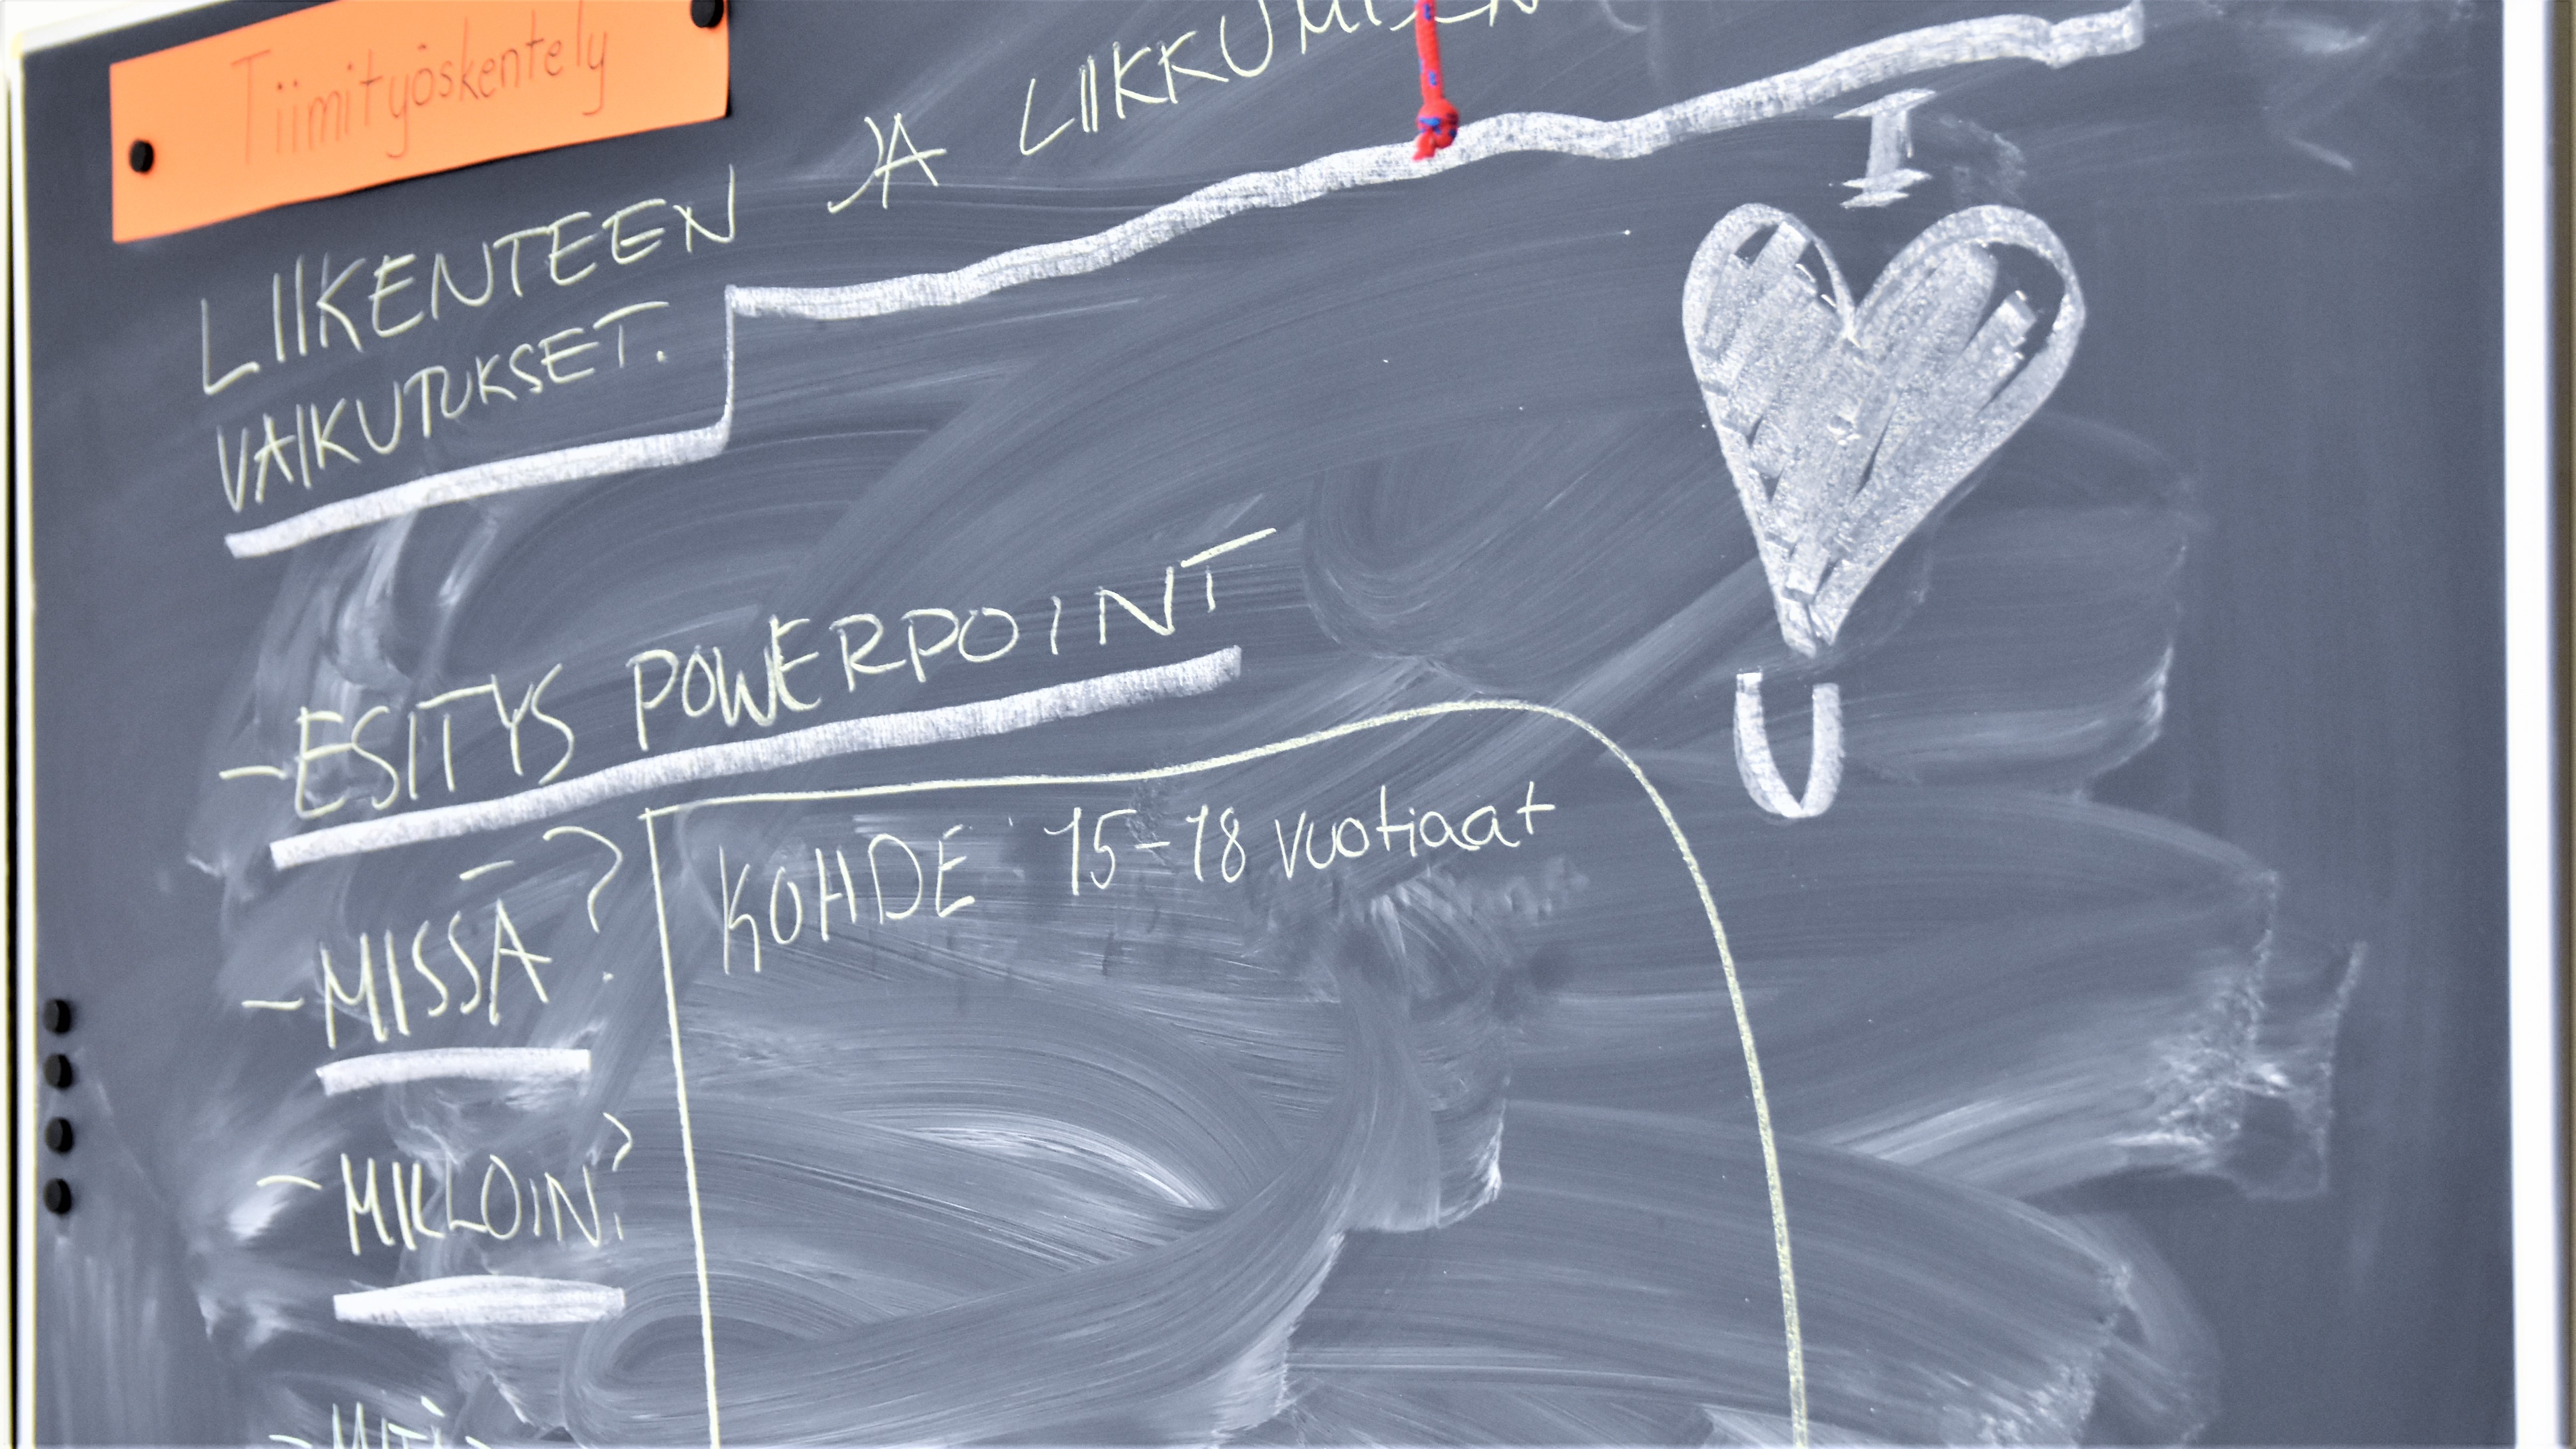 Tiimityöskentely
LIIKENTEEN JA LIIKKUMISEN
VAIKUTUKSET.
I
U
-ESITYS POWERPOINT
- MISSÄ?
KOHDE 15-18 vuotiaat
- MILLOIN?
- MITÄ